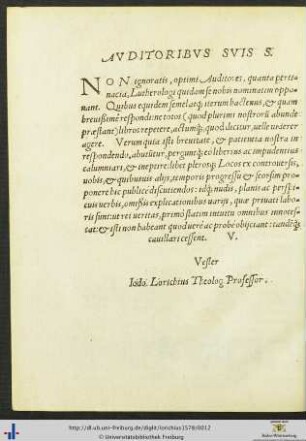 AVDITORIBVS SVIS S.
NON ignoratis, optimi Auditores, quanta perti-
nacia, Lutherologi quidam se nobis nominatim oppo-
nant. Quibus equidem semel atque iterum hactenus, & quam
breuissimè respondi: ne totos (quod plurimi nostrorū abunde
præstant) libros repetere, actumque, quod dicitur, velle viderer
agere. Verum quia ista breuitate, & patientia nostra in
respondendo, abutūtur, perguntque eo liberius ac impudentius
calumniari, & inepire: libet plerosque Locos ex controuersis,
vobis, & quibusuis alijs, temporis progressu & seorsim pro-
ponere hic publicè discutiendos: idque nudis, planis ac perspi-
cuis verbis, omissis explicationibus varijs, quæ priuati labo-
ris sunt: vt rei veritas, primo statim intuitu omnibus innotes-
cat: & isti non habeant quod verè ac probè obijciant: tandemque
cauillari cessent. V.
Vester
Iodo. Lorichius Theolog. Professor.
http://dl.ub.uni-freiburg.de/diglit/lorichius1578/0012
© Universitätsbibliothek Freiburg
Baden-Württemberg